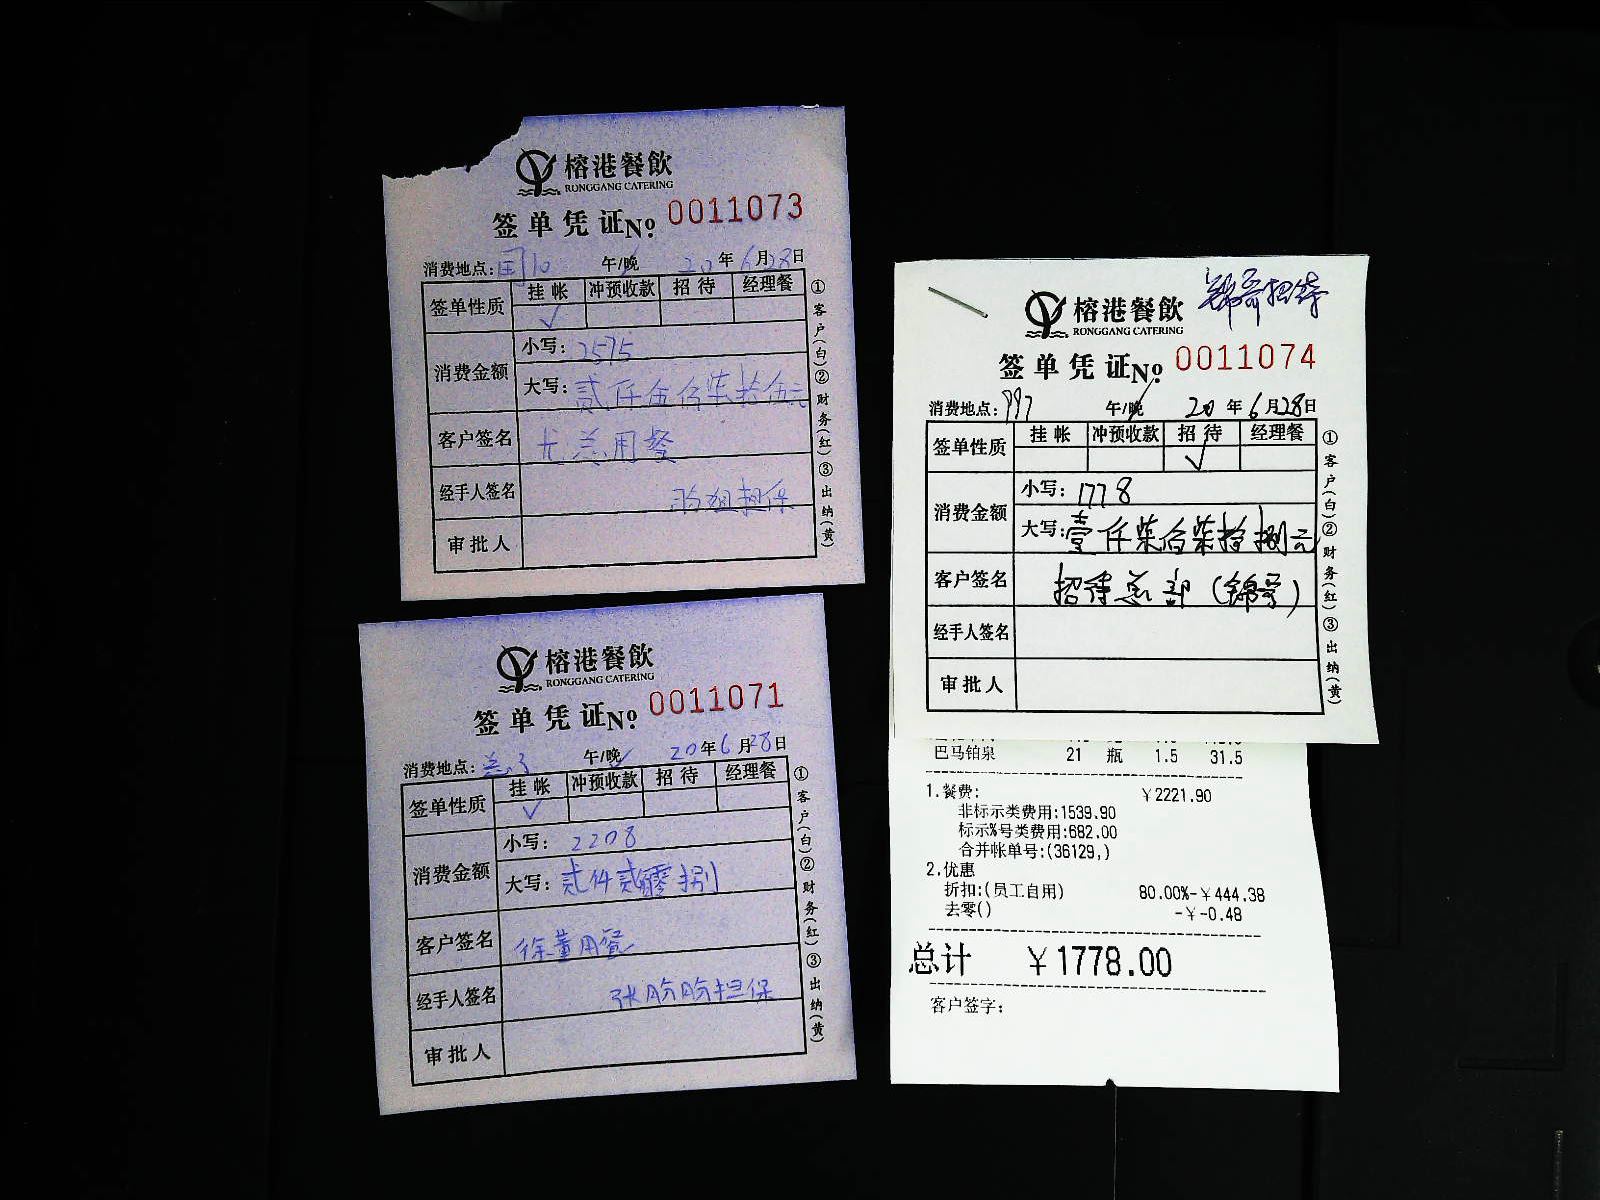 榕港餐飲
RONGGANG CATERING
签单凭证No. 0011073
消费地点: 午/晚 20年6月28日
签单性质 挂帐 冲预收款 招待 经理餐
√
消费金额 小写: 2575
大写: 贰仟伍佰柒拾伍元
客户签名 尤总用餐
经手人签名 担保
审批人
①客户(白)②财务(红)③出纳(黄)
榕港餐飲
RONGGANG CATERING
签单凭证No. 0011071
消费地点: 午/晚 20年6月28日
签单性质 挂帐 冲预收款 招待 经理餐
√
消费金额 小写: 2208
大写: 贰仟贰零捌
客户签名 徐董用餐
经手人签名 张盼盼担保
审批人
①客户(白)②财务(红)③出纳(黄)
招待
榕港餐飲
RONGGANG CATERING
签单凭证No. 0011074
消费地点: 997 午/晚 20年6月28日
签单性质 挂帐 冲预收款 招待 经理餐
√
消费金额 小写: 1778
大写: 壹仟柒佰柒拾捌元
客户签名 招待总部(锦哥)
经手人签名
审批人
①客户(白)②财务(红)③出纳(黄)
巴马铂泉 21 瓶 1.5 31.5
1.餐费: ¥2221.90
非标示类费用:1539.90
标示%号类费用:682.00
合并帐单号:(36129,)
2.优惠
折扣:(员工自用) 80.00%-¥444.38
去零() -¥-0.48
总计 ¥1778.00
客户签字: